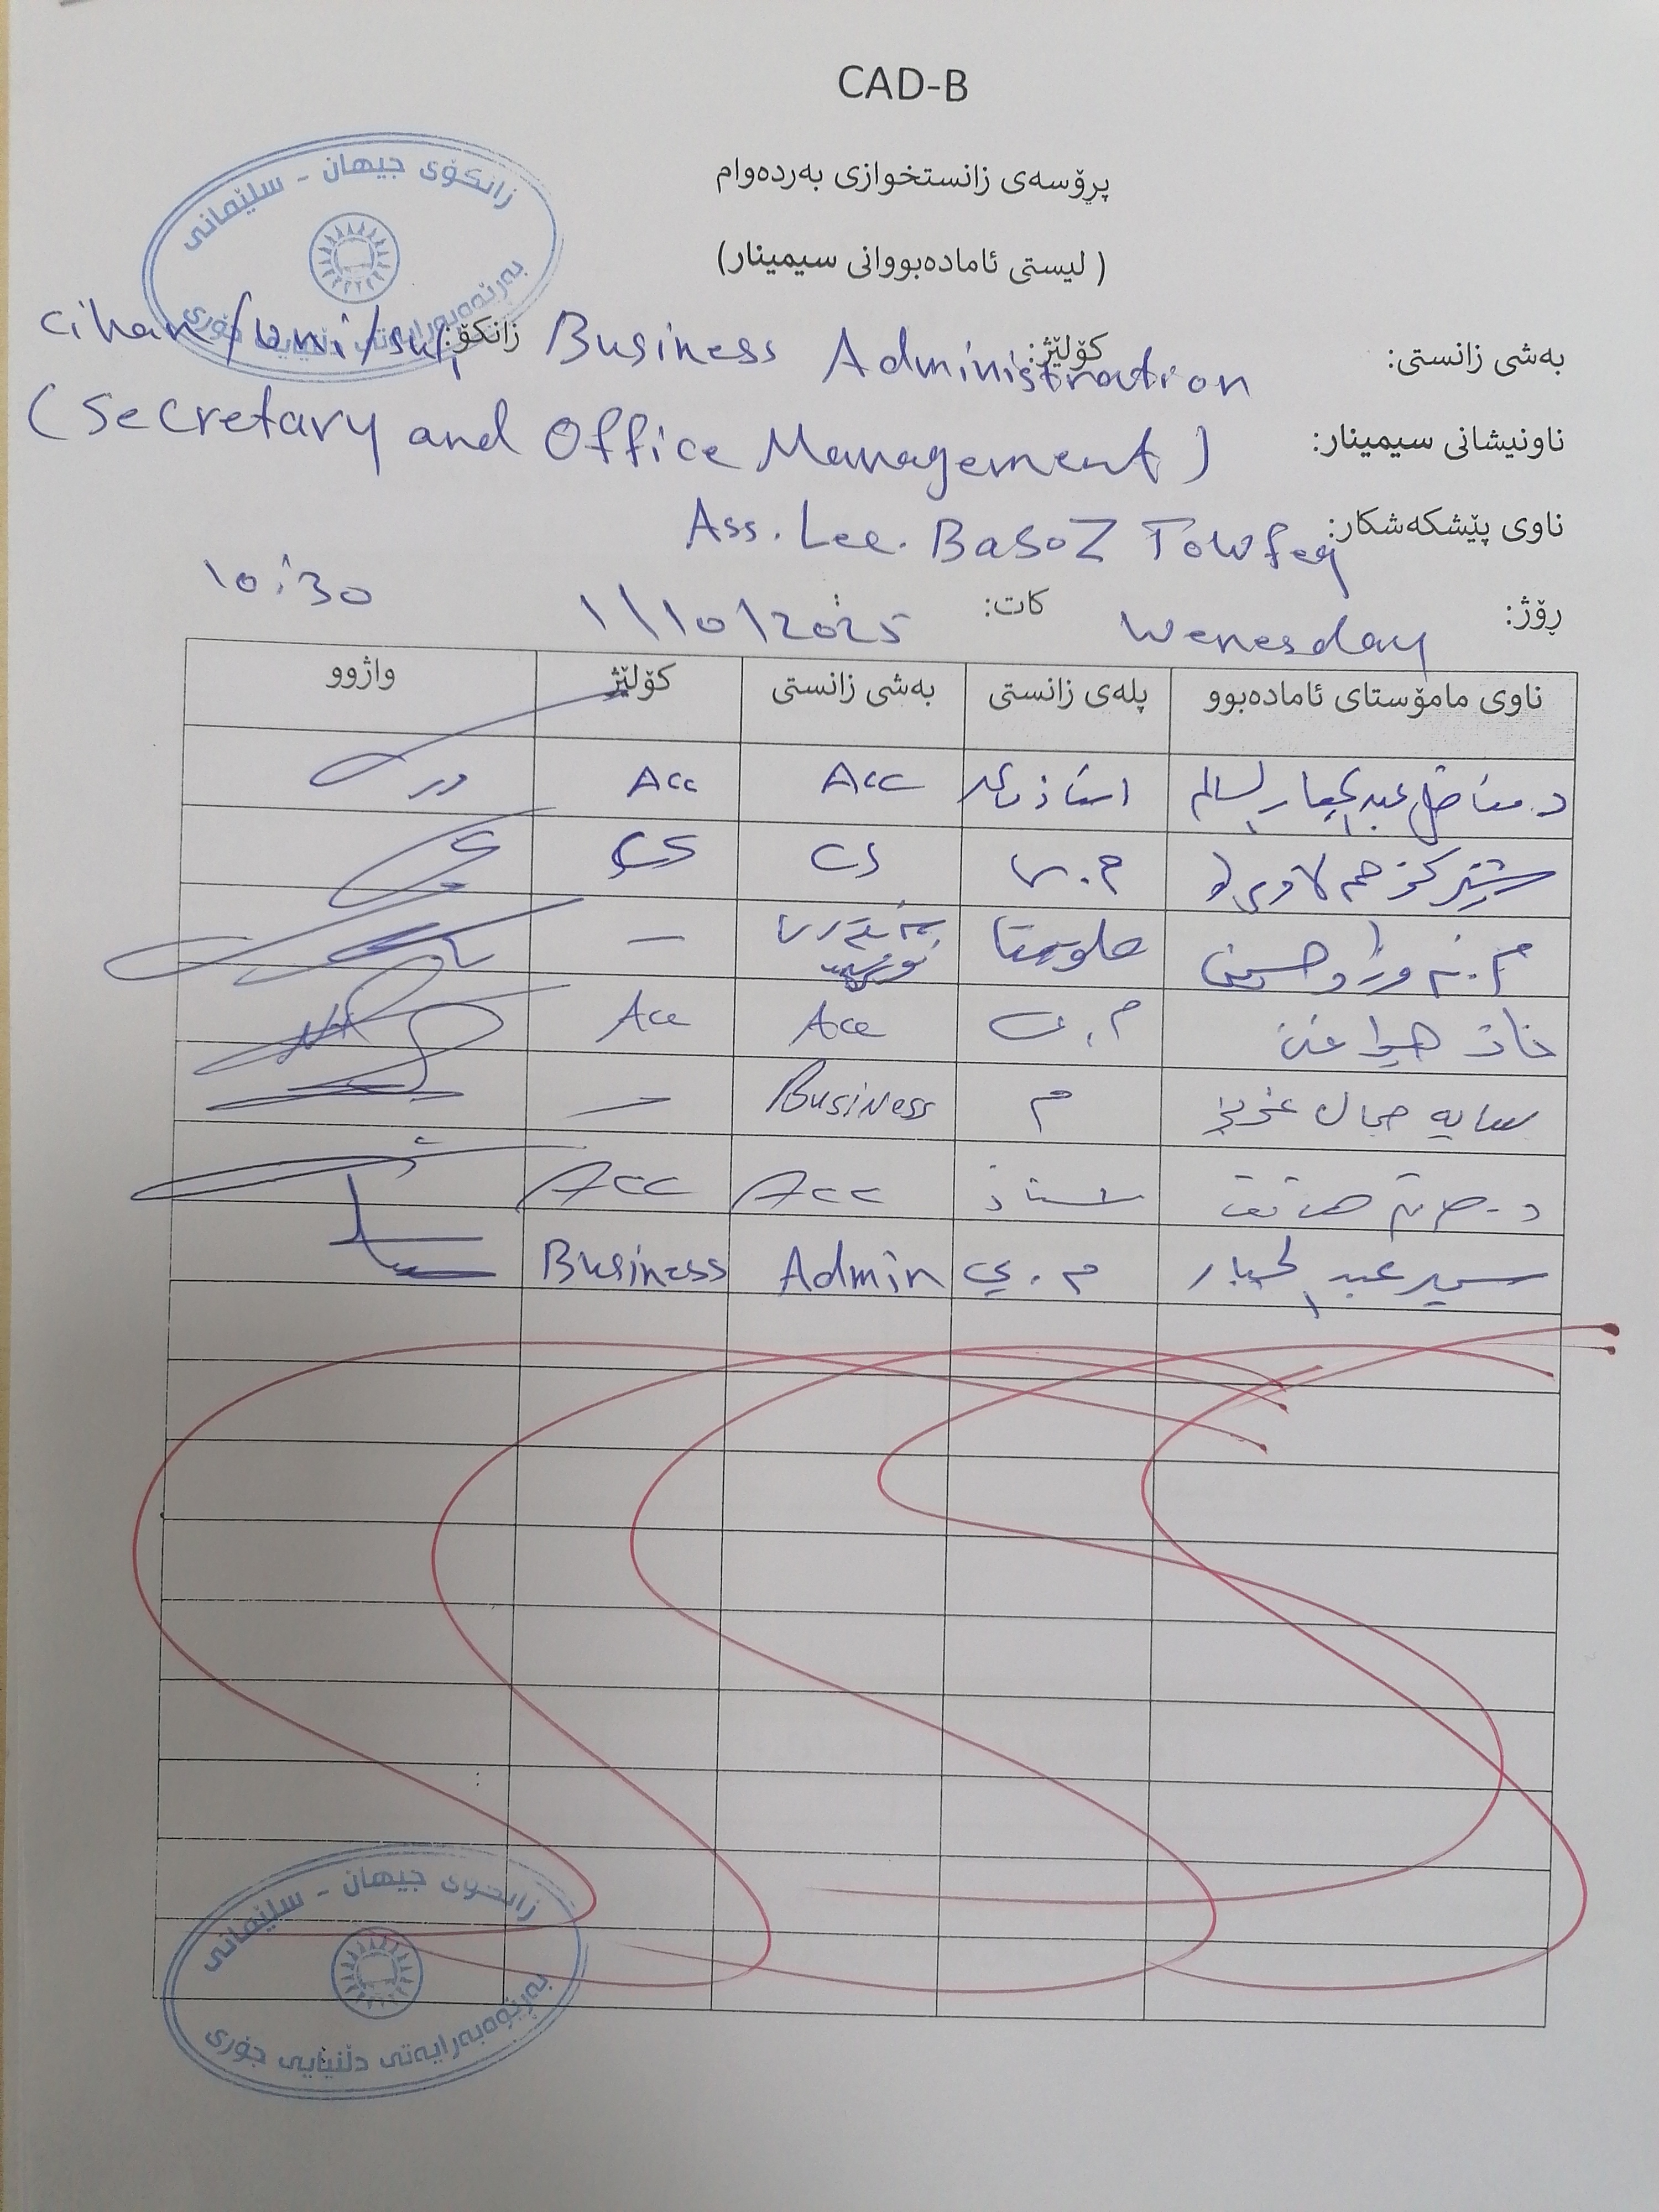 CAD-B
پرۆسەی زانستخوازی بەردەوام
( لیستی ئامادەبووانی سیمینار)
زانکۆی جیهان - سلێمانی
بەڕێوەبەرایەتی دڵنیایی جۆری
بەشی زانستی: کۆلێژ: Business Administration زانکۆ: Cihan/uni/sul
ناونیشانی سیمینار: (Secretary and Office Management)
ناوی پێشکەشکار: Ass. Lec. BaSoZ Towfeq
ڕۆژ: Wenesday کات: 1\10\2025 10:30
ناوی مامۆستای ئامادەبوو پلەی زانستی بەشی زانستی کۆلێژ واژوو
د. عبد الجبار سالم استاذ Acc Acc
م.ی CS CS
م. مامۆستا —
هیوا م.ی Acc Acc
سایه جمال عزیز م Business —
د. استاذ Acc Acc
سمير عبد الجبار م.ي Admin Business
زانکۆی جیهان - سلێمانی
بەڕێوەبەرایەتی دڵنیایی جۆری